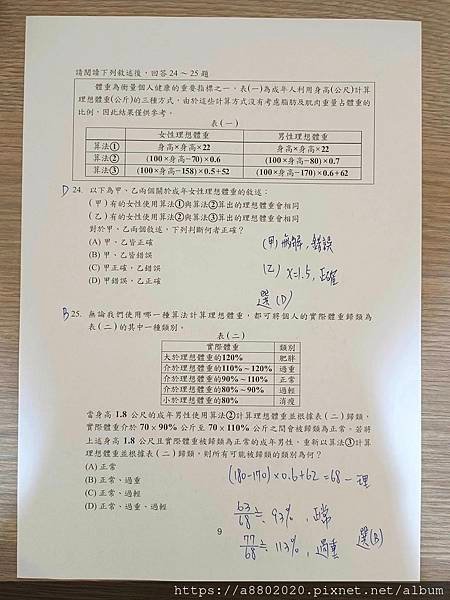 請閱讀下列敘述後，回答 24 ~ 25 題
體重為衡量個人健康的重要指標之一，表(一)為成年人利用身高(公尺)計算
理想體重(公斤)的三種方式，由於這些計算方式沒有考慮脂肪及肌肉重量占體重的
比例，因此結果僅供參考。
表(一)
女性理想體重 男性理想體重
算法① 身高×身高×22 身高×身高×22
算法② (100×身高−70)×0.6 (100×身高−80)×0.7
算法③ (100×身高−158)×0.5+52 (100×身高−170)×0.6+62
D 24. 以下為甲、乙兩個關於成年女性理想體重的敘述：
(甲) 有的女性使用算法①與算法②算出的理想體重會相同
(乙) 有的女性使用算法②與算法③算出的理想體重會相同
對於甲、乙兩個敘述，下列判斷何者正確？
(A) 甲、乙皆正確
(B) 甲、乙皆錯誤
(C) 甲正確，乙錯誤
(D) 甲錯誤，乙正確
(甲) 無解，錯誤
(乙) x=1.5，正確
選(D)
B 25. 無論我們使用哪一種算法計算理想體重，都可將個人的實際體重歸類為
表(二)的其中一種類別。
表(二)
實際體重 類別
大於理想體重的120% 肥胖
介於理想體重的110% ~ 120% 過重
介於理想體重的90% ~ 110% 正常
介於理想體重的80% ~ 90% 過輕
小於理想體重的80% 消瘦
當身高 1.8 公尺的成年男性使用算法②計算理想體重並根據表(二)歸類，
實際體重介於 70×90% 公斤至 70×110% 公斤之間會被歸類為正常。若將
上述身高 1.8 公尺且實際體重被歸類為正常的成年男性，重新以算法③計算
理想體重並根據表(二)歸類，則所有可能被歸類的類別為何？
(A) 正常
(B) 正常、過重
(C) 正常、過輕
(D) 正常、過重、過輕
(180-170)×0.6+62=68－理
63/68≒93%，正常
77/68≒113%，過重
選(B)
9
https://a8802020.pixnet.net/album